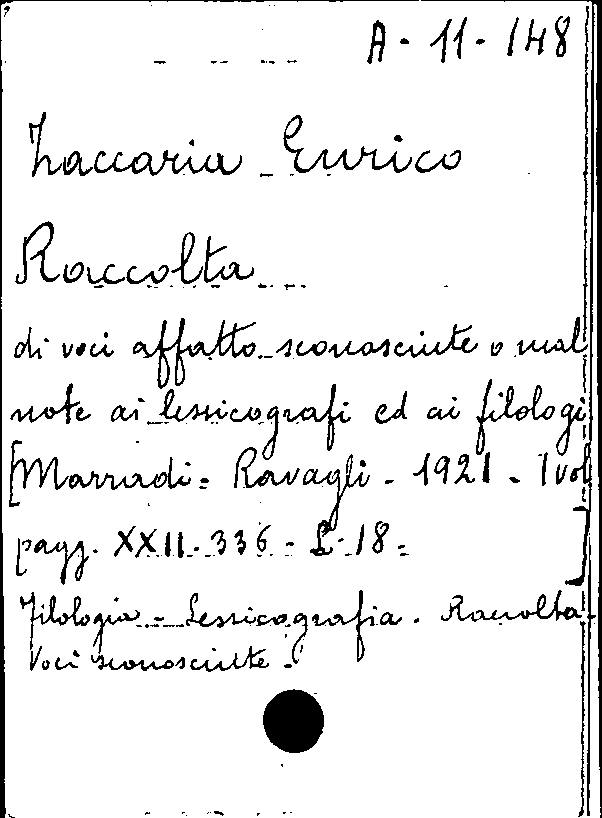 A - 11 - 148
Zaccaria Enrico
Raccolta
di voci affatto sconosciute o mal
note ai lessicografi ed ai filologi
[Marradi = Ravagli - 1921 - 1 vol
pagg. XXII - 336 - L. 18 = ]
Filologia - Lessicografia. Raccolta -
Voci sconosciute -